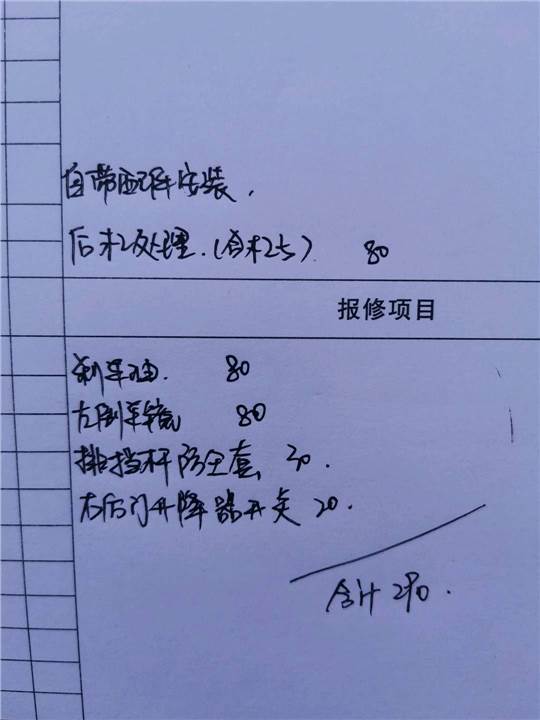 自带配件安装.
后杠处理.(含杠25). 80
报修项目
刹车油. 80
左倒车镜 80
排挡杆防尘套 30.
右后门升降器开关 20.
合计290.